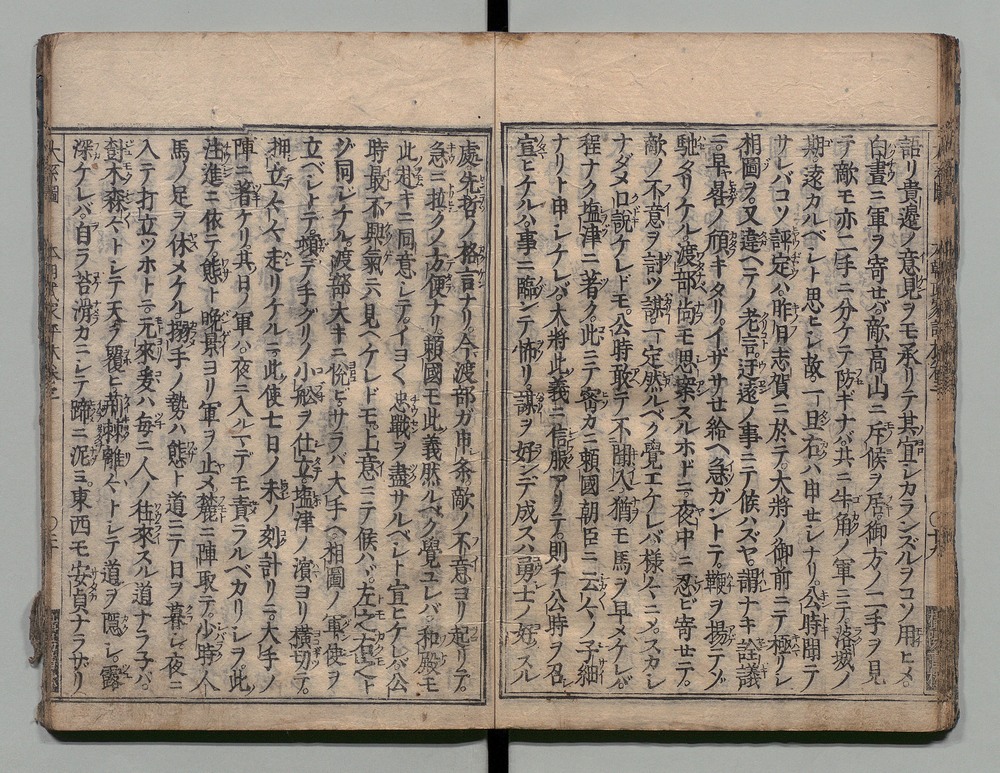 語リ貴邊ノ意見ヲモ承リテ其宜シカランズルヲコソ用ヒメ。
白晝ニ軍ヲ寄セバ。敵高山ニ斥候ヲ居。御方ノ二手ヲ見
テ敵モ亦二手ニ分ケテ防ギナバ。共ニ牛角ノ軍ニテ落城ノ
期。遠カルベシト思ヒシ故。一旦右ハ申セシナリ。公時聞テ
サレバコソ評定ハ昨日志賀ニ於テ。大將ノ御前ニテ極リシ
相圖ヲ。又違ヘテノ老言。迂遠ノ事ニテ候ハズヤ。謂ナキ詮議
ニ早晷ノ傾キタリ。イザサセ給ヘ急ガントテ。鞭ヲ揚テゾ
馳タリケル。渡部尚モ思案スルホドニ。夜中ニ忍ビ寄セテ。
敵ノ不意ヲ討ツ謀。一定然ルベク覺エケレバ。様々ニメ。スカシ
ナダメ口説ケレドモ。公時敢テ不聞入。猶モ馬ヲ早メケレバ。
程ナク塩津ニ著ク。此ニテ密カニ頼國朝臣ニ云々ノ子細
ナリト申シケレバ。大將此義ニ信服アリテ。則チ公時ヲ召
宣ヒケルハ。事ニ臨ンデ怖リ。謀ヲ好ンデ成スハ勇士ノ好スル
處。先哲ノ格言ナリ。今渡部ガ申条。敵ノ不意ヨリ起リテ。
急ニ拉クノ方便ナリ。頼國モ此義然ルベク覺ユレバ。和殿モ
此赴キニ同意シテ。イヨ〱忠戰ヲ盡サルベシト宣ヒケレバ。公
時最不興氣ニ見ヘケレドモ。上意ニテ候ハバ。左之右之ト
ゾ同シケル。渡部大キニ悅ヒ。サラバ大手ヘ相圖ノ軍使ヲ
立ベシトテ。頓テ手グリノ小舩ヲ仕立。塩津ノ濱ヨリ横切テ。
押立々々走リケルニ。此使七日ノ未ノ刻計リニ。大手ノ
陣ニ著ケリ。其日ノ軍ハ。夜ニ入ルマデモ責ラルベカリシヲ。此
注進ニ依テ。態ト晩景ヨリ軍ヲ止メ。麓ニ陣取テ。少時人
馬ノ足ヲ休メケル。搦手ノ勢ハ。態ト道ニテ日ヲ暮シ。夜ニ
入テ打立ツホトニ。元來爰ハ毎ニ人ノ往來スル道ナラ子バ。
樹木森々トシテ天ヲ覆ヒ。荊棘離々トシテ道ヲ隱シ。露
深ケレバ。自ラ苔滑カニシテ蹄ニ泥ミ。東西モ安貞ナラサリ